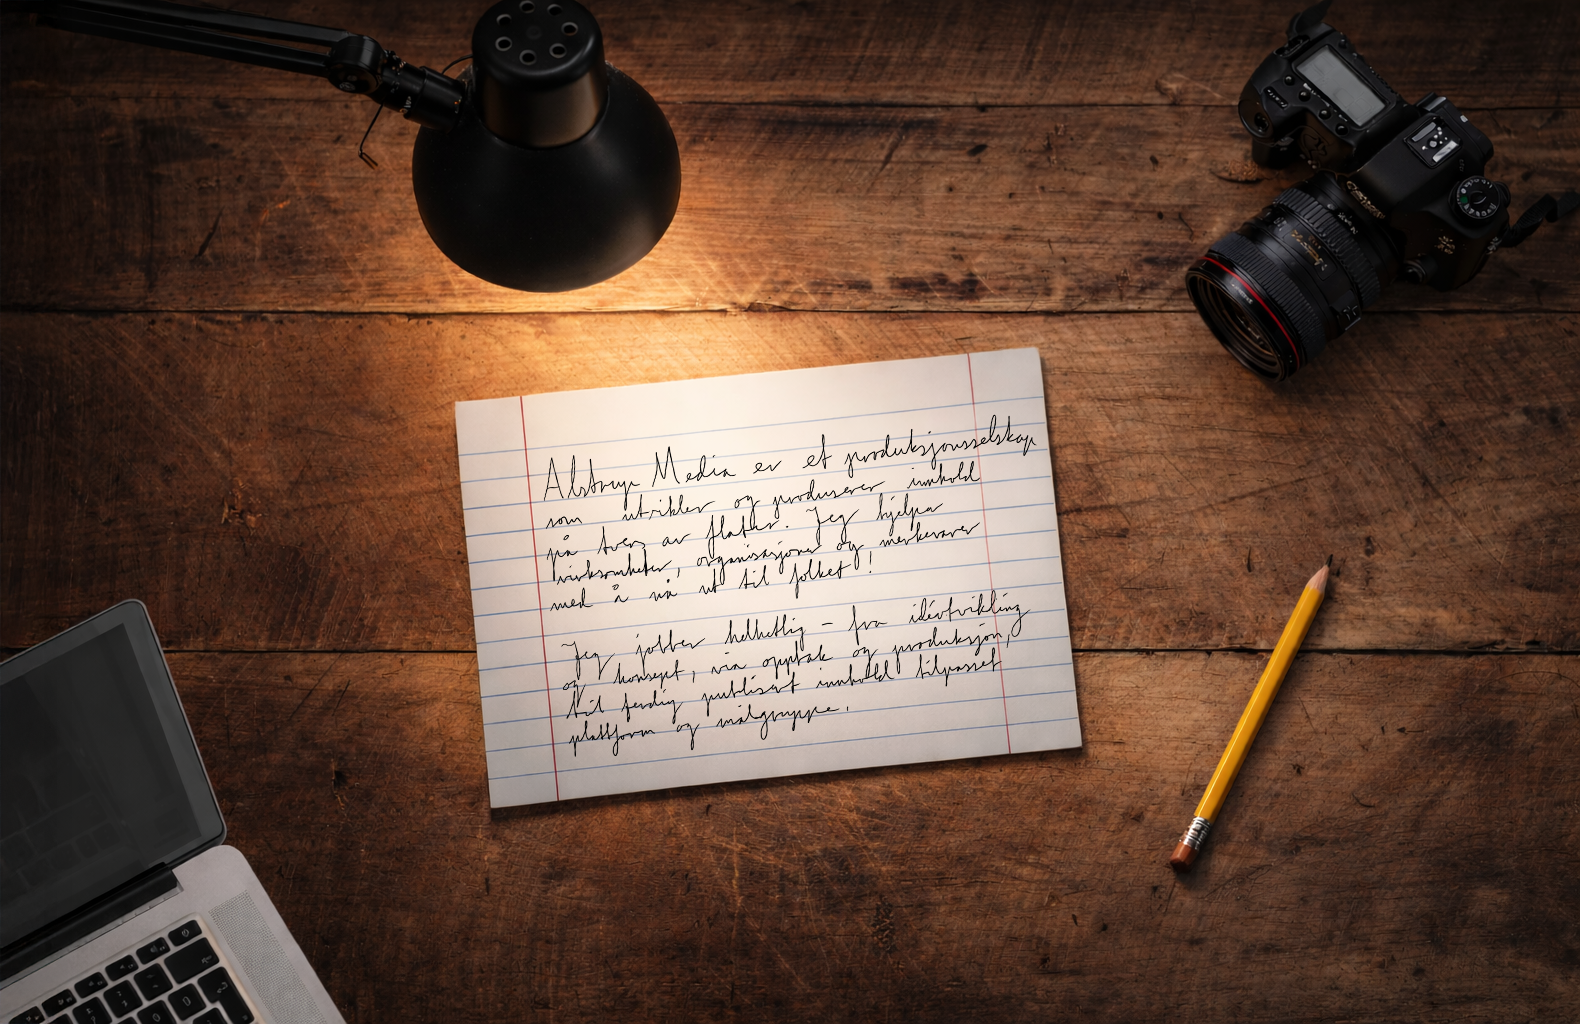 Alstrup Media er et produksjonsselskap
som utvikler og produserer innhold
på tvers av flater. Jeg hjelper
virksomheter, organisasjoner og merkevarer
med å nå ut til folket!
Jeg jobber helhetlig – fra idéutvikling
og konsept, via opptak og produksjon,
til ferdig publisert innhold tilpasset
plattform og målgruppe.